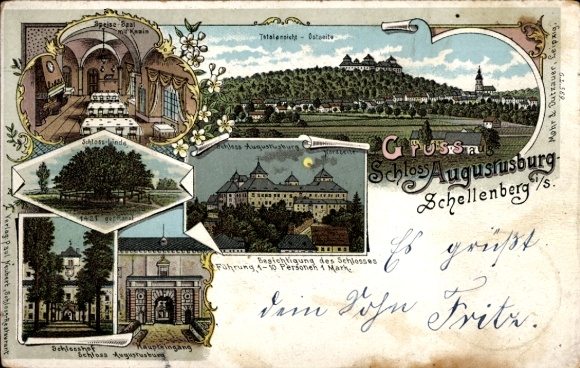 Speise-Saal
mit Kamin
Totalansicht - Ostseite
Schloss-Linde
1421 gepflanzt
Schloss-Augustusburg
Nordseite
Gruss a.
Schloss Augustusburg-
Schellenberg i/S.
Besichtigung des Schlosses
Führung, 1-10 Personen 1 Mark.
Schlosshof
Haupteingang
Schloss Augustusburg
Es grüßt
dein Sohn Fritz.
Mohr & Dutzauer, Leipzig.
Verlag Paul